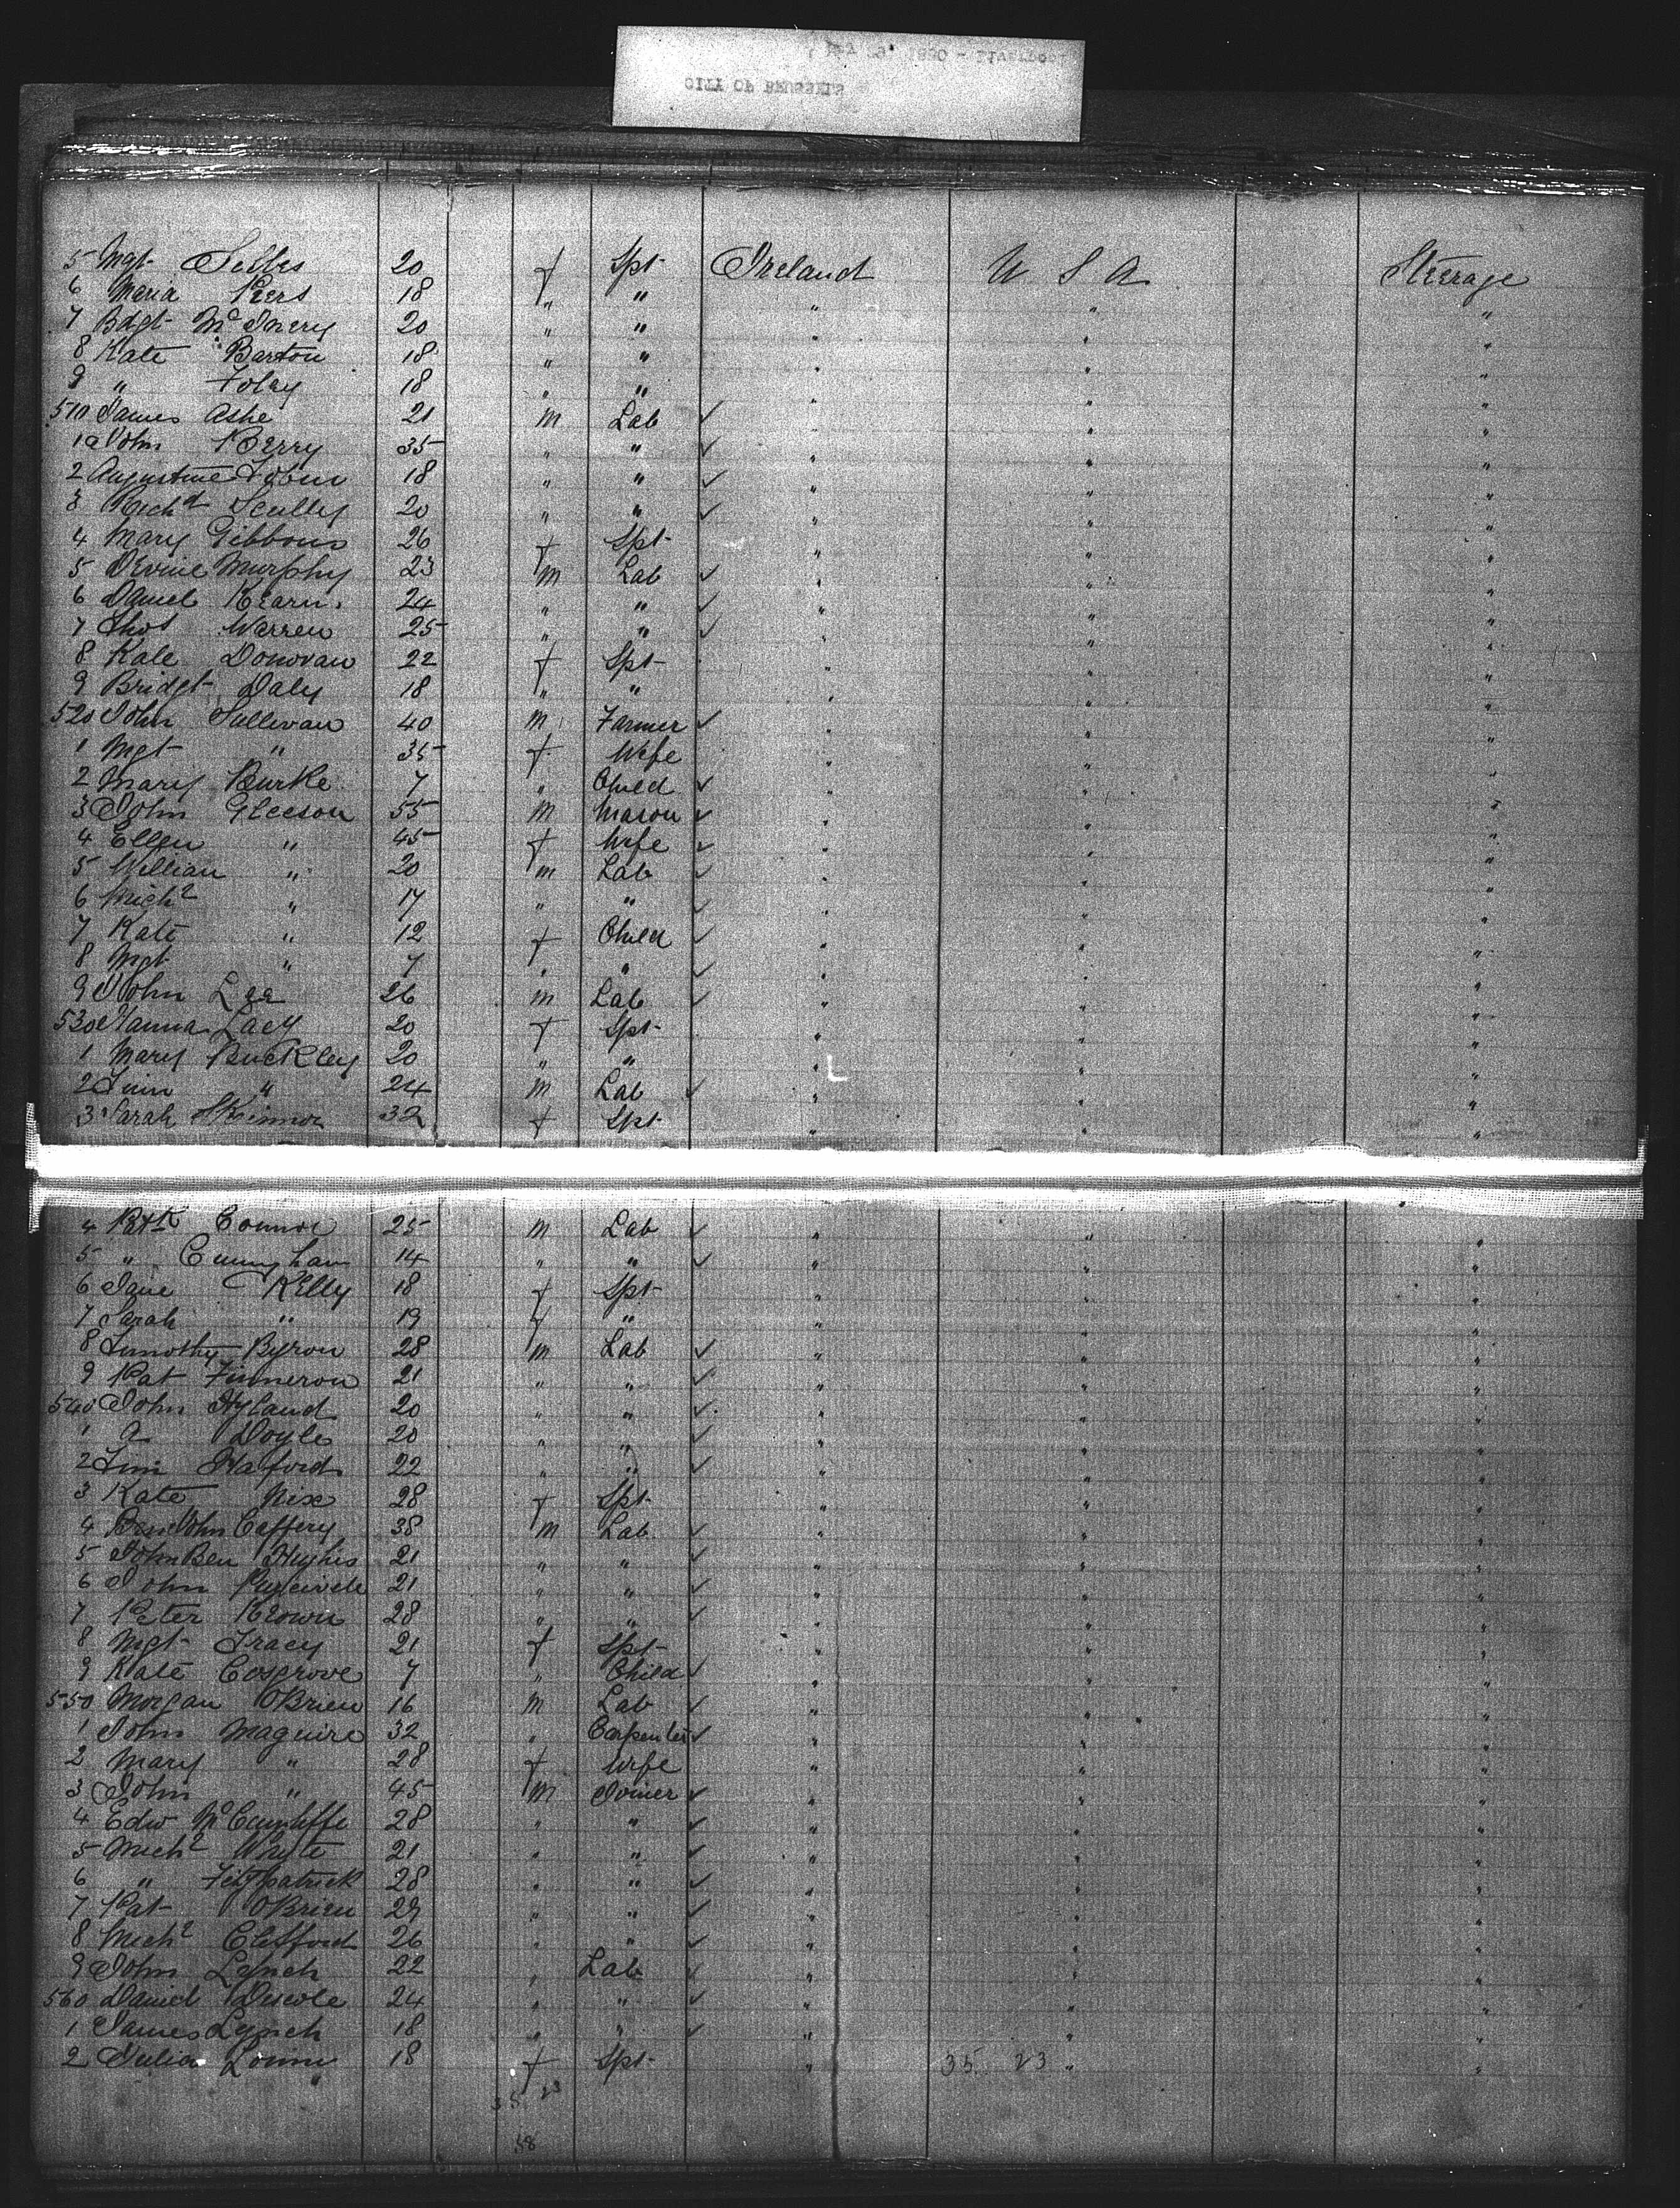 CITY OF BRUSSELS
5 Mgt 20 f Spt Ireland U S A Steerage
6 Maria Peers 18 " " " " "
7 Bdgt McInery 20 " " " " "
8 Kate Barton 18 " " " " "
9 " Foley 18 " " " " "
510 James Ashe 21 m Lab ✓ " " "
1 John Berry 35 " " ✓ " " "
2 Augustine Tobin 18 " " ✓ " " "
3 Richd Scully 20 " " ✓ " " "
4 Mary Gibbons 26 f Spt " " "
5 Murphy 23 m Lab ✓ " " "
6 Daniel Kearns 24 " " ✓ " " "
7 Thos Warren 25 " " ✓ " " "
8 Kate Donovan 22 f Spt " " "
9 Bridgt Daly 18 " " " " "
520 John Sullivan 40 m Farmer ✓ " " "
1 Mgt " 35 f Wife " " "
2 Mary Burke 7 " Child ✓ " " "
3 John Gleeson 55 m Mason ✓ " " "
4 Ellen " 45 f Wife ✓ " " "
5 William " 20 m Lab ✓ " " "
6 Michl " 17 " " ✓ " " "
7 Kate " 12 f Child ✓ " " "
8 Mgt " 7 " " ✓ " " "
9 John Lee 26 m Lab ✓ " " "
530 Hanna Lacy 20 f Spt " " "
1 Mary Buckley 20 " " " " "
2 Tim " 24 m Lab ✓ " " "
3 Sarah Skinnor 32 f Spt " " "
4 Patk Connor 25 m Lab ✓ " " "
5 " Cunngham 14 " " ✓ " " "
6 Jane Kelly 18 f Spt " " "
7 Sarah " 19 f " " " "
8 Timothy Byron 28 m Lab ✓ " " "
9 Pat Finneron 21 " " ✓ " " "
540 John Hyland 20 " " ✓ " " "
1 A Doyle 20 " " ✓ " " "
2 Tim Haford 22 " " ✓ " " "
3 Kate Nixe 28 f Spt " " "
4 John Caffery 38 m Lab ✓ " " "
5 John Ben Hughis 21 " " ✓ " " "
6 John 21 " " ✓ " " "
7 Peter Brown 28 " " ✓ " " "
8 Mgt Tracy 21 f Spt " " "
9 Kate Cosgrove 7 " Child ✓ " " "
550 Morgan OBrien 16 m Lab ✓ " " "
1 John Maguire 32 " Carpenter ✓ " " "
2 Mary " 28 f Wife " " "
3 John " 45 m Joiner ✓ " " "
4 Edw 28 " " ✓ " " "
5 Michl Whyte 21 " " ✓ " " "
6 " Fitzpatrick 28 " " ✓ " " "
7 Pat OBrien 29 " " ✓ " " "
8 Michl Clifford 26 " " ✓ " " "
9 John Lynch 22 " Lab ✓ " " "
560 Daniel Discole 24 " " ✓ " " "
1 James Lynch 18 " " ✓ " " "
2 Julia 18 f Spt " 35 23 " "
35 23
58